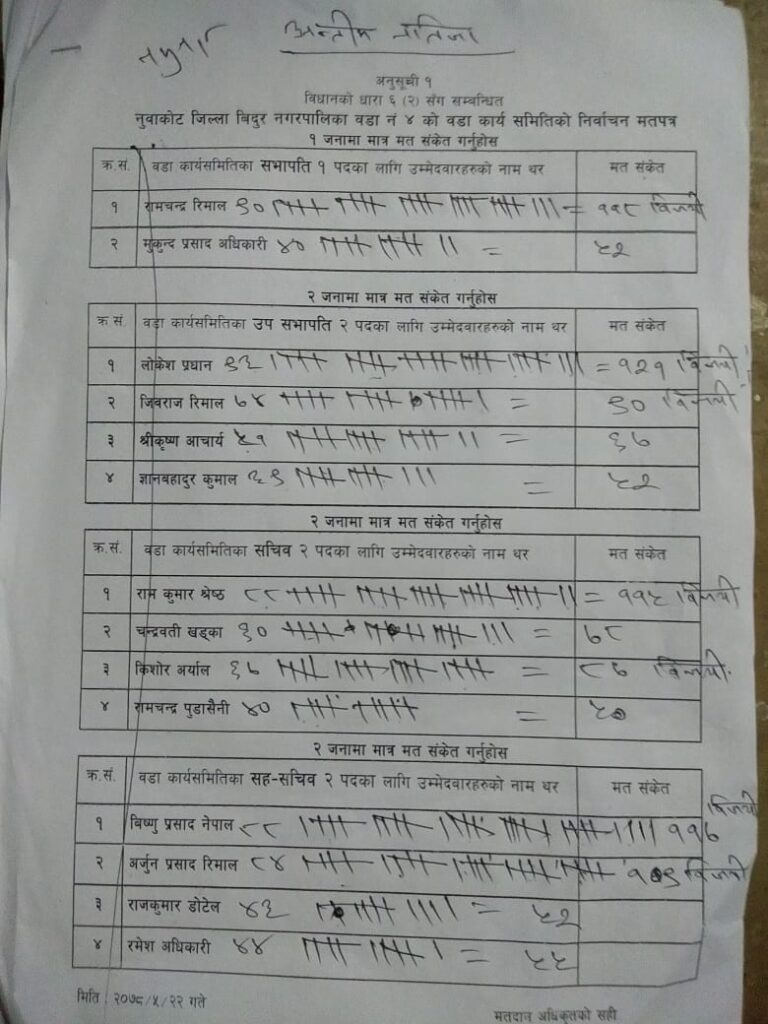 नमुना
अन्तीम नतिजा
अनुसूची १
विधानको धारा ६ (२) संग सम्बन्धित
नुवाकोट जिल्ला बिदुर नगरपालिका वडा नं ४ को वडा कार्य समितिको निर्वाचन मतपत्र
१ जनामा मात्र मत संकेत गर्नुहोस
क्र.सं. वडा कार्यसमितिका सभापति १ पदका लागि उम्मेदवारहरुको नाम थर मत संकेत
१ रामचन्द्र रिमाल ९० = ११८ विजयी
२ मुकुन्द प्रसाद अधिकारी ४० = ५२
२ जनामा मात्र मत संकेत गर्नुहोस
क्र सं. वडा कार्यसमितिका उप सभापति २ पदका लागि उम्मेदवारहरुको नाम थर मत संकेत
१ लोकेश प्रधान ९३ = १२१ विजयी
२ जिवराज रिमाल ७४ = ९० विजयी
३ श्रीकृष्ण आचार्य ५१ = ६७
४ ज्ञानबहादुर कुमाल ३९ = ५२
२ जनामा मात्र मत संकेत गर्नुहोस
क्र.सं. वडा कार्यसमितिका सचिव २ पदका लागि उम्मेदवारहरुको नाम थर मत संकेत
१ राम कुमार श्रेष्ठ ८८ = ११५ विजयी
२ चन्द्रवती खड्का ६० = ७८
३ किशोर अर्याल ६७ = ८७ विजयी
४ रामचन्द्र पुडासैनी ४० = ५०
२ जनामा मात्र मत संकेत गर्नुहोस
क्र.सं. वडा कार्यसमितिका सह-सचिव २ पदका लागि उम्मेदवारहरुको नाम थर मत संकेत
१ बिष्णु प्रसाद नेपाल ८८ ११७ विजयी
२ अर्जुन प्रसाद रिमाल ८४ १०९ विजयी
३ राजकुमार डोटेल ४३ = ५२
४ रमेश अधिकारी ४४ = ५५
मिति : २०७८/५/२२ गते
मतदान अधिकृतको सही